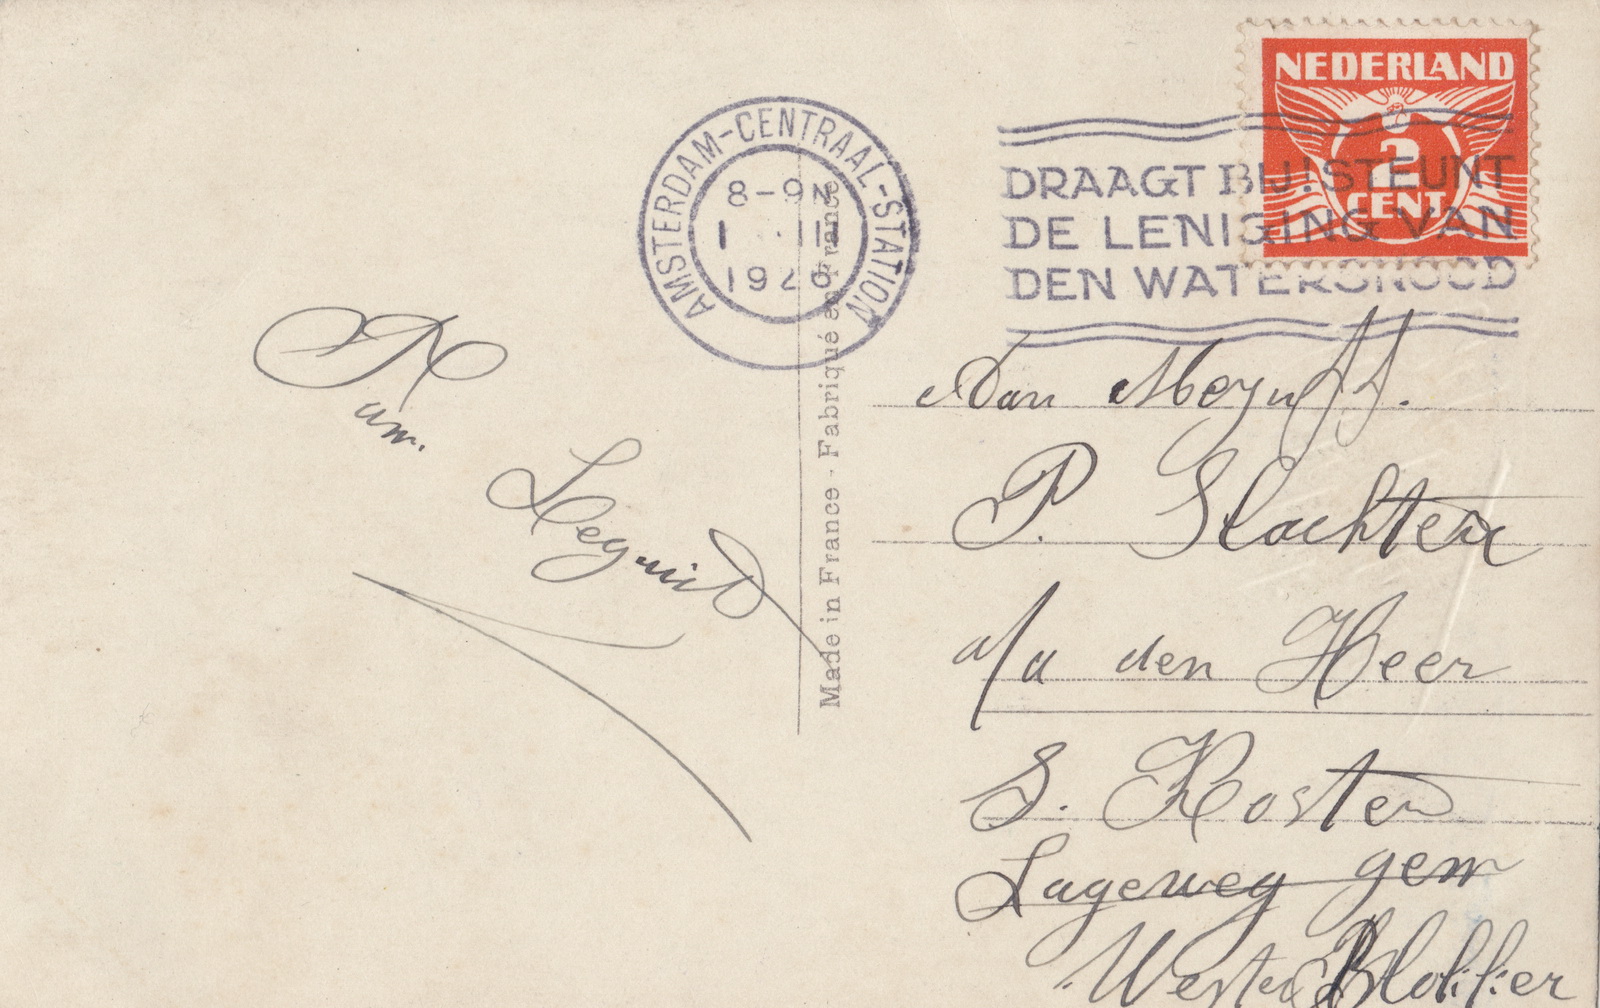 NEDERLAND
2
CENT
AMSTERDAM-CENTRAAL-STATION
8-9
1 II
192
DRAAGT BIJ! STEUNT
DE LENIGING VAN
DEN WATERSNOOD
Made in France - Fabriqué en France
Fam.
Aan Mejuff.
P. Slachter
a/a den Heer
S. Koster
Lageweg gem
Wester Blokker